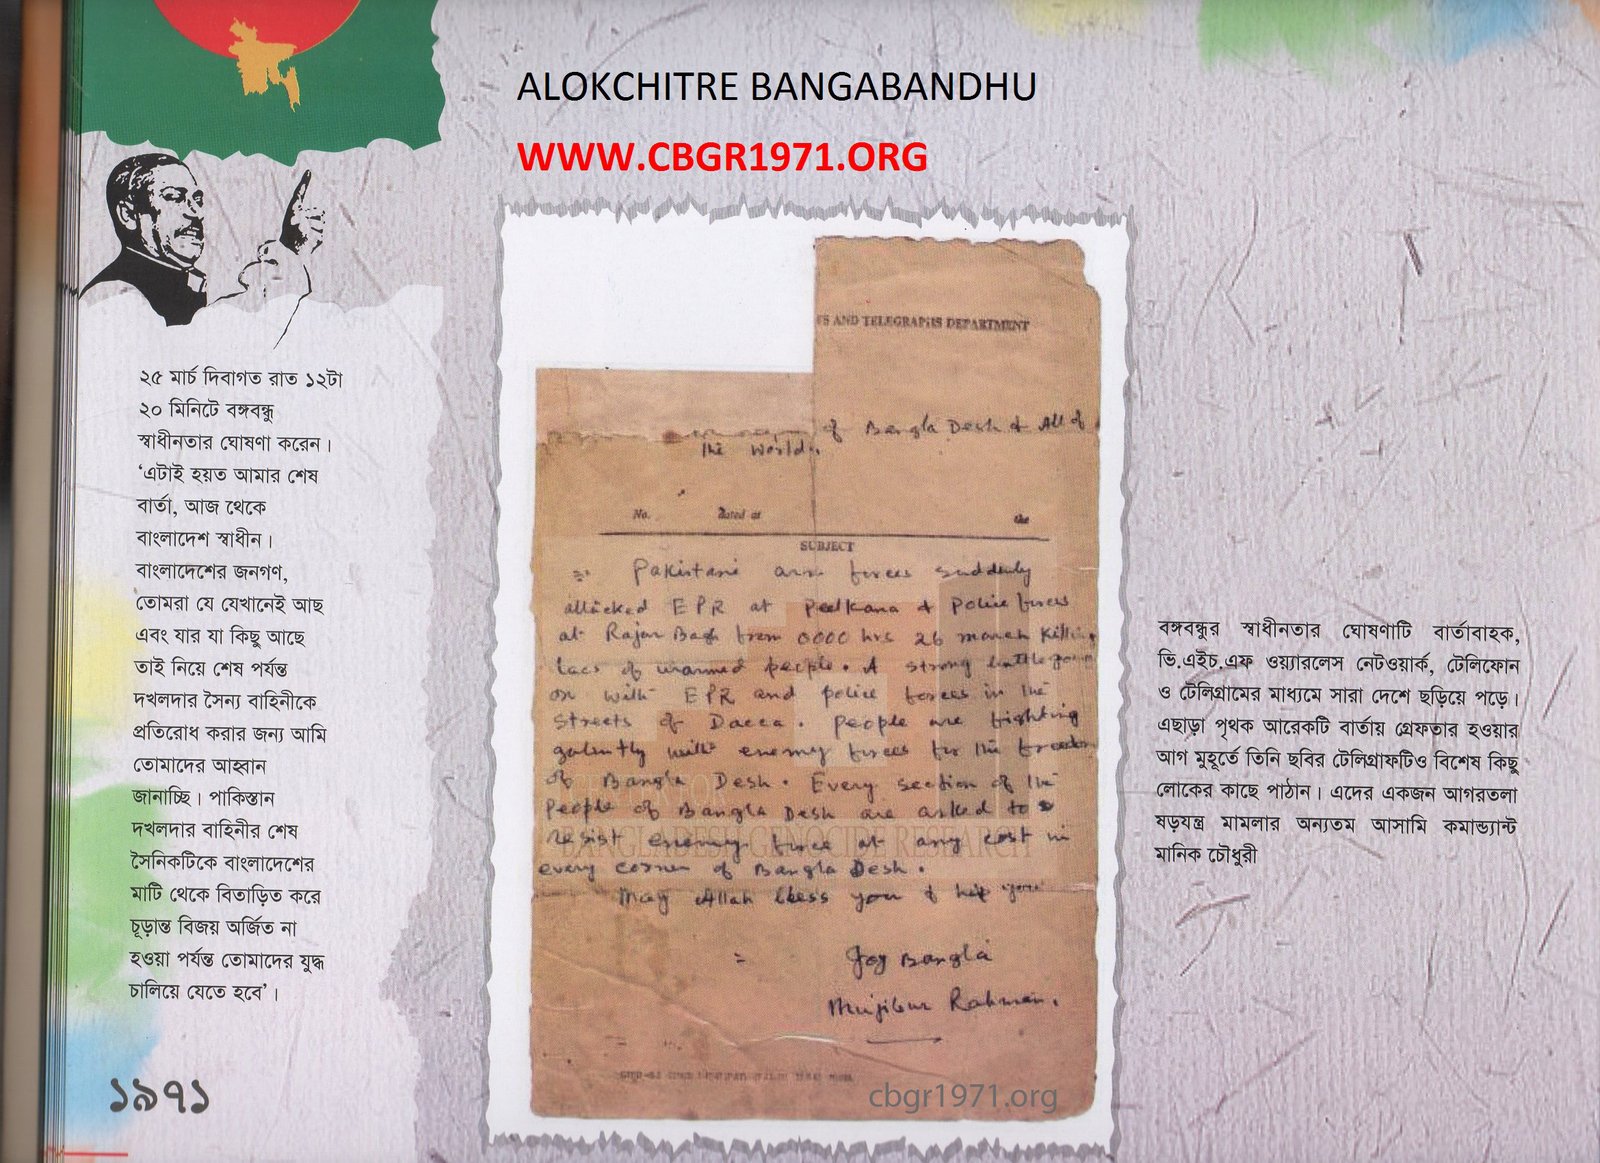 ALOKCHITRE BANGABANDHU
WWW.CBGR1971.ORG
২৫ মার্চ দিবাগত রাত ১২টা
২০ মিনিটে বঙ্গবন্ধু
স্বাধীনতার ঘোষণা করেন।
‘এটাই হয়ত আমার শেষ
বার্তা, আজ থেকে
বাংলাদেশ স্বাধীন।
বাংলাদেশের জনগণ,
তোমরা যে যেখানেই আছ
এবং যার যা কিছু আছে
তাই নিয়ে শেষ পর্যন্ত
দখলদার সৈন্য বাহিনীকে
প্রতিরোধ করার জন্য আমি
তোমাদের আহ্বান
জানাচ্ছি। পাকিস্তান
দখলদার বাহিনীর শেষ
সৈনিকটিকে বাংলাদেশের
মাটি থেকে বিতাড়িত করে
চূড়ান্ত বিজয় অর্জিত না
হওয়া পর্যন্ত তোমাদের যুদ্ধ
চালিয়ে যেতে হবে’।
১৯৭১
TS AND TELEGRAPHS DEPARTMENT
of Bangla Desh & All of
the World.
No. Dated at the
SUBJECT
Pakistani arm forces suddenly
attacked EPR at Peelkana & Police forces
at Rajar Bagh from 0000 hrs 26 march killing
lacs of unarmed people. A strong battle going
on with EPR and police forces in the
streets of Dacca. People are fighting
galantly with enemy forces for the freedom
of Bangla Desh. Every section of the
People of Bangla Desh are asked to
resist enemy force at any cost in
every corner of Bangla Desh.
May Allah bless you & help you
Joy Bangla
Mujibur Rahman.
BANGLADESH GENOCIDE RESEARCH
cbgr1971.org
বঙ্গবন্ধুর স্বাধীনতার ঘোষণাটি বার্তাবাহক,
ভি.এইচ.এফ ওয়্যারলেস নেটওয়ার্ক, টেলিফোন
ও টেলিগ্রামের মাধ্যমে সারা দেশে ছড়িয়ে পড়ে।
এছাড়া পৃথক আরেকটি বার্তায় গ্রেফতার হওয়ার
আগ মুহূর্তে তিনি ছবির টেলিগ্রাফটিও বিশেষ কিছু
লোকের কাছে পাঠান। এদের একজন আগরতলা
ষড়যন্ত্র মামলার অন্যতম আসামি কমান্ড্যান্ট
মানিক চৌধুরী